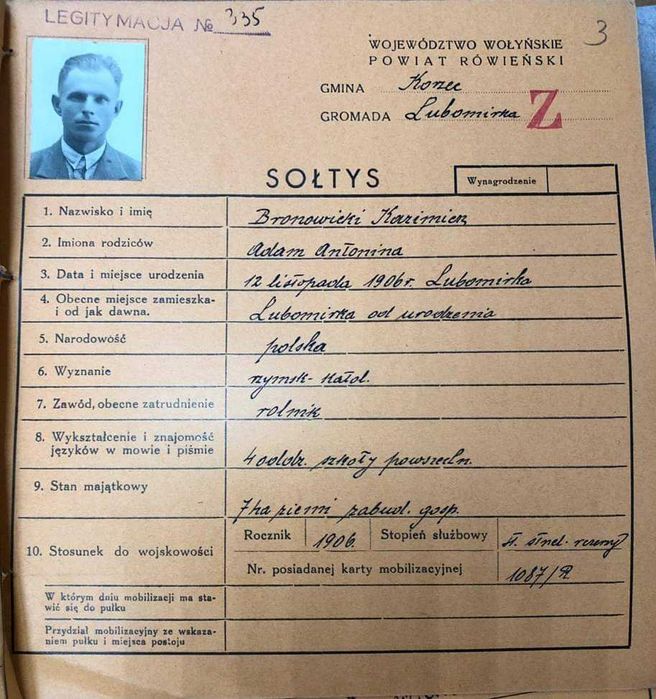 LEGITYMACJA № 335
3
WOJEWÓDZTWO WOŁYŃSKIE
POWIAT RÓWIEŃSKI
GMINA Korzec
GROMADA Lubomirka Z
SOŁTYS
Wynagrodzenie
1. Nazwisko i imię Bronowicki Kazimierz
2. Imiona rodziców Adam Antonina
3. Data i miejsce urodzenia 12 listopada 1906 r. Lubomirka
4. Obecne miejsce zamieszka-
i od jak dawna. Lubomirka od urodzenia
5. Narodowość polska
6. Wyznanie rzymsk-katol.
7. Zawód, obecne zatrudnienie rolnik
8. Wykształcenie i znajomość
języków w mowie i piśmie 4 oddz. szkoły powszechn.
9. Stan majątkowy 7 ha ziemi zabud. gosp.
10. Stosunek do wojskowości
Rocznik 1906. Stopień służbowy st. strzel.
Nr. posiadanej karty mobilizacyjnej 1087/R
W którym dniu mobilizacji ma sta-
wić się do pułku
Przydział mobilizacyjny ze wskaza-
niem pułku i miejsca postoju